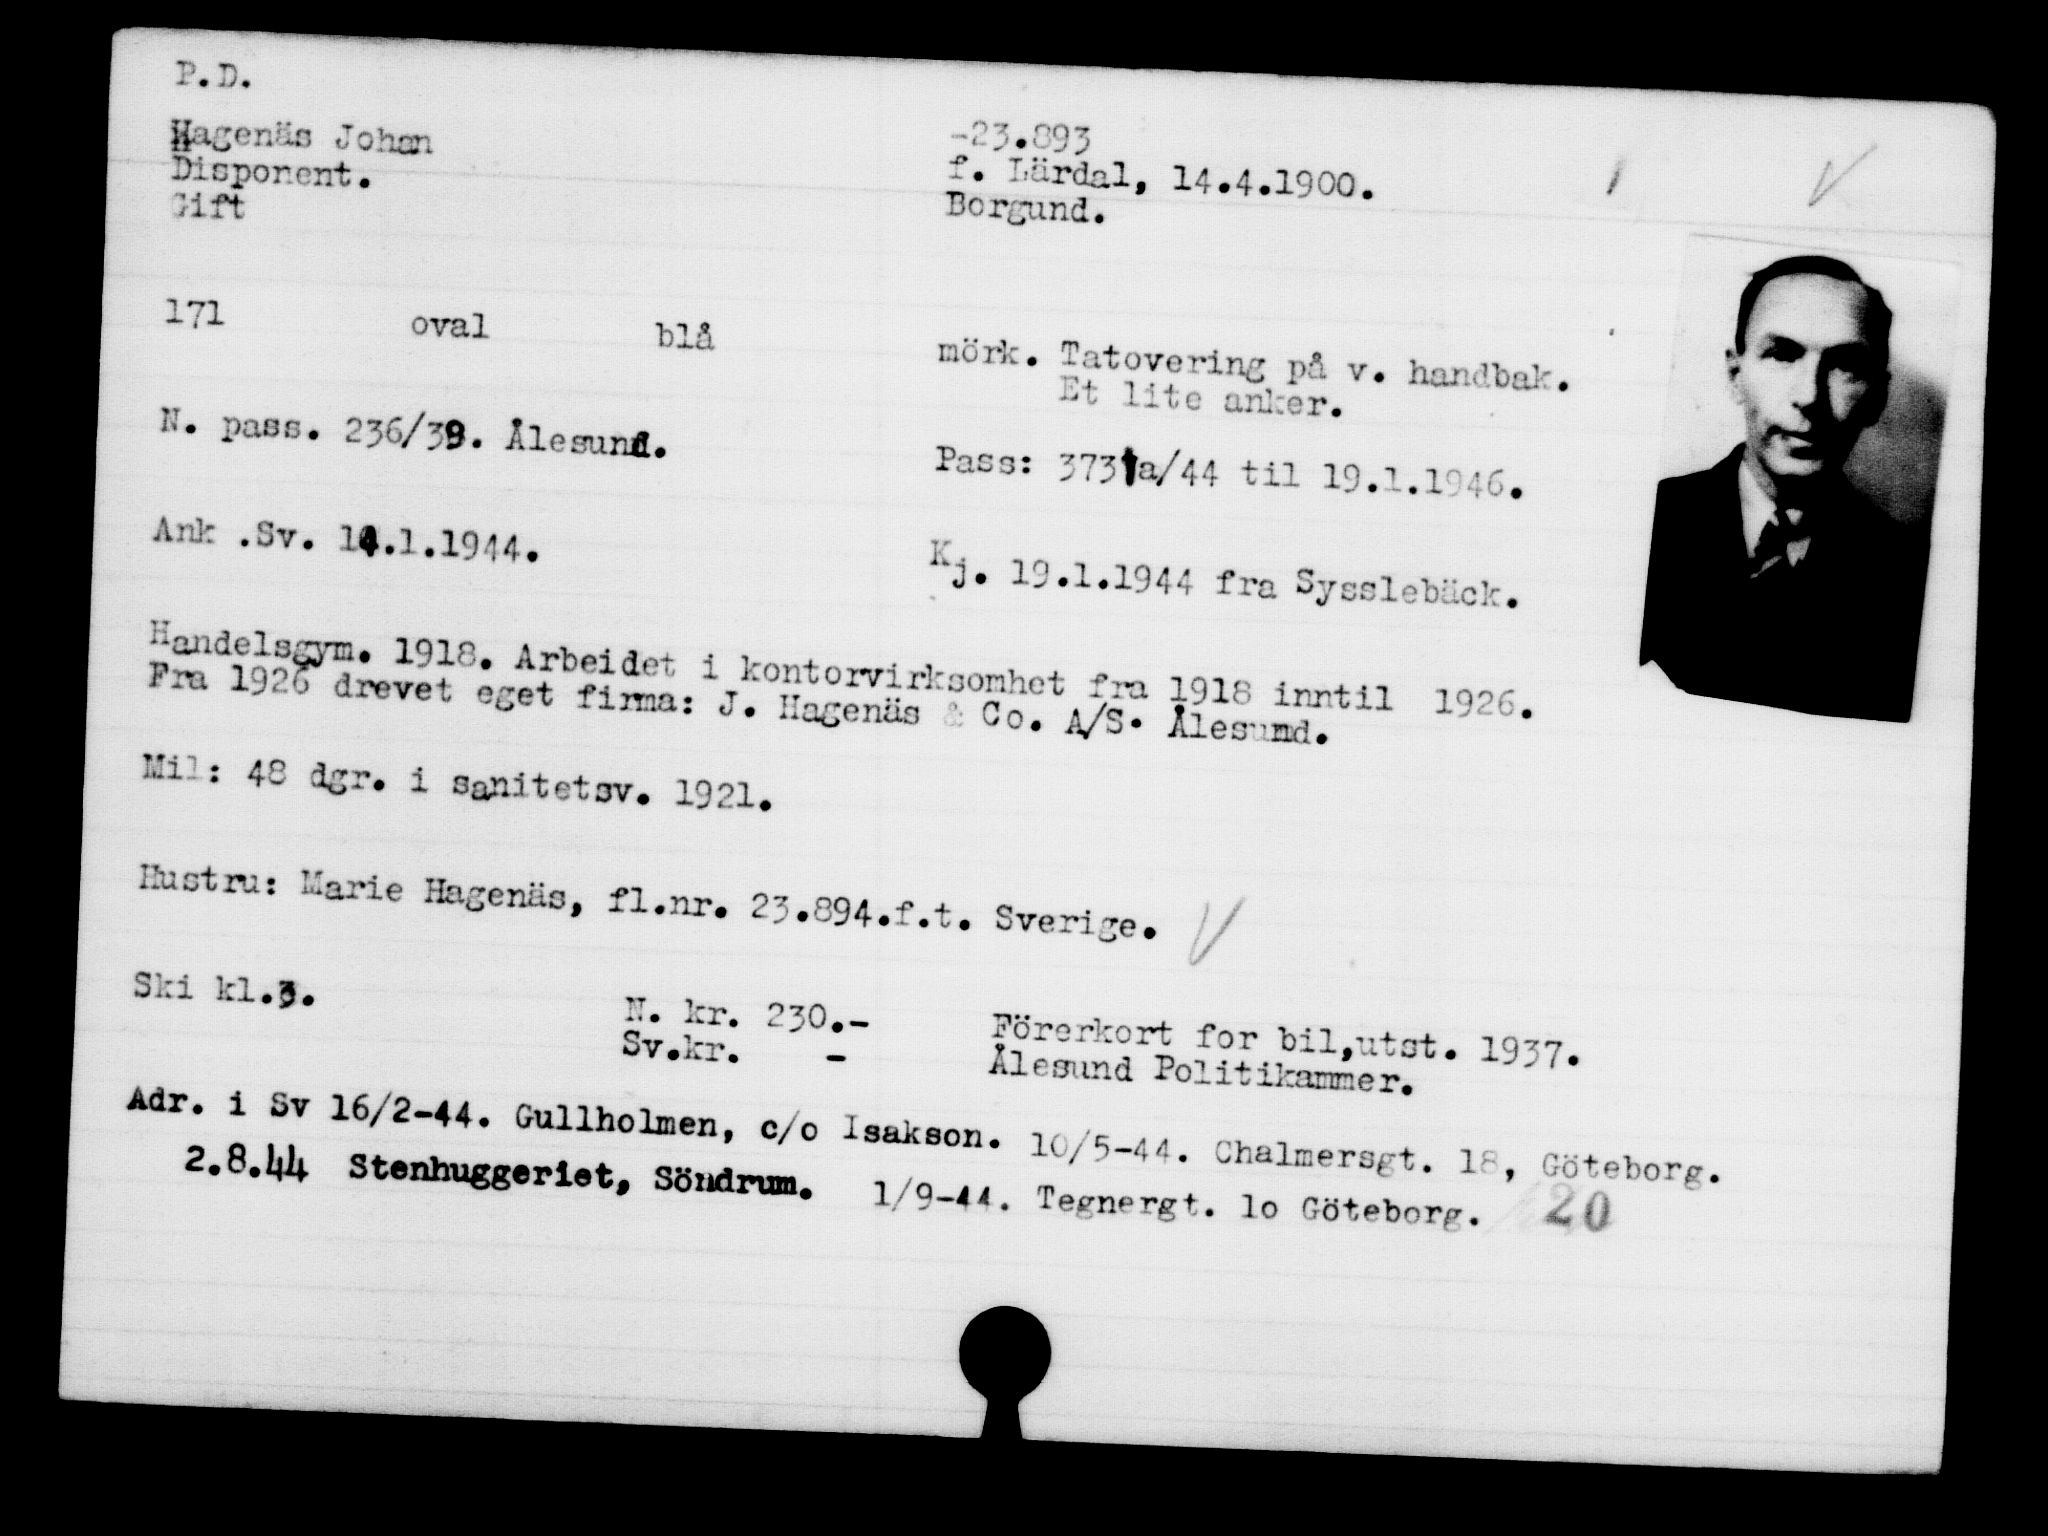 P.D.
Hagenäs Johan -23.893
Disponent. f. Lärdal, 14.4.1900.
Gift Borgund.
171 oval blå mörk. Tatovering på v. handbak.
Et lite anker.
N. pass. 236/39. Ålesund. Pass: 3731a/44 til 19.1.1946.
Ank .Sv. 14.1.1944. Kj. 19.1.1944 fra Sysslebäck.
Handelsgym. 1918. Arbeidet i kontorvirksomhet fra 1918 inntil 1926.
Fra 1926 drevet eget firma: J. Hagenäs & Co. A/S. Ålesund.
Mil: 48 dgr. i sanitetsv. 1921.
Hustru: Marie Hagenäs, fl.nr. 23.894.f.t. Sverige.
Ski kl.3. N. kr. 230.- Förerkort for bil,utst. 1937.
Sv.kr. - Ålesund Politikammer.
Adr. i Sv 16/2-44. Gullholmen, c/o Isakson. 10/5-44. Chalmersgt. 18, Göteborg.
2.8.44 Stenhuggeriet, Söndrum. 1/9-44. Tegnergt. lo Göteborg. 20